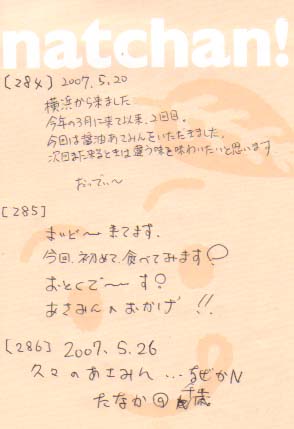 natchan!
[284] 2007.5.20
横浜から来ました
今年の3月に来て以来、2回目。
今回は醤油あてみんをいただきました。
次回また来るときは違う味を味わいたいと思います
おってぃ〜
[285]
まいど〜来てます。
今回、初めて、食べてみます♡
おとくで〜す?
あさみんのおかげ!!
[286] 2007.5.26
久々のあさみん...なぜかN
たなか@ 千歳